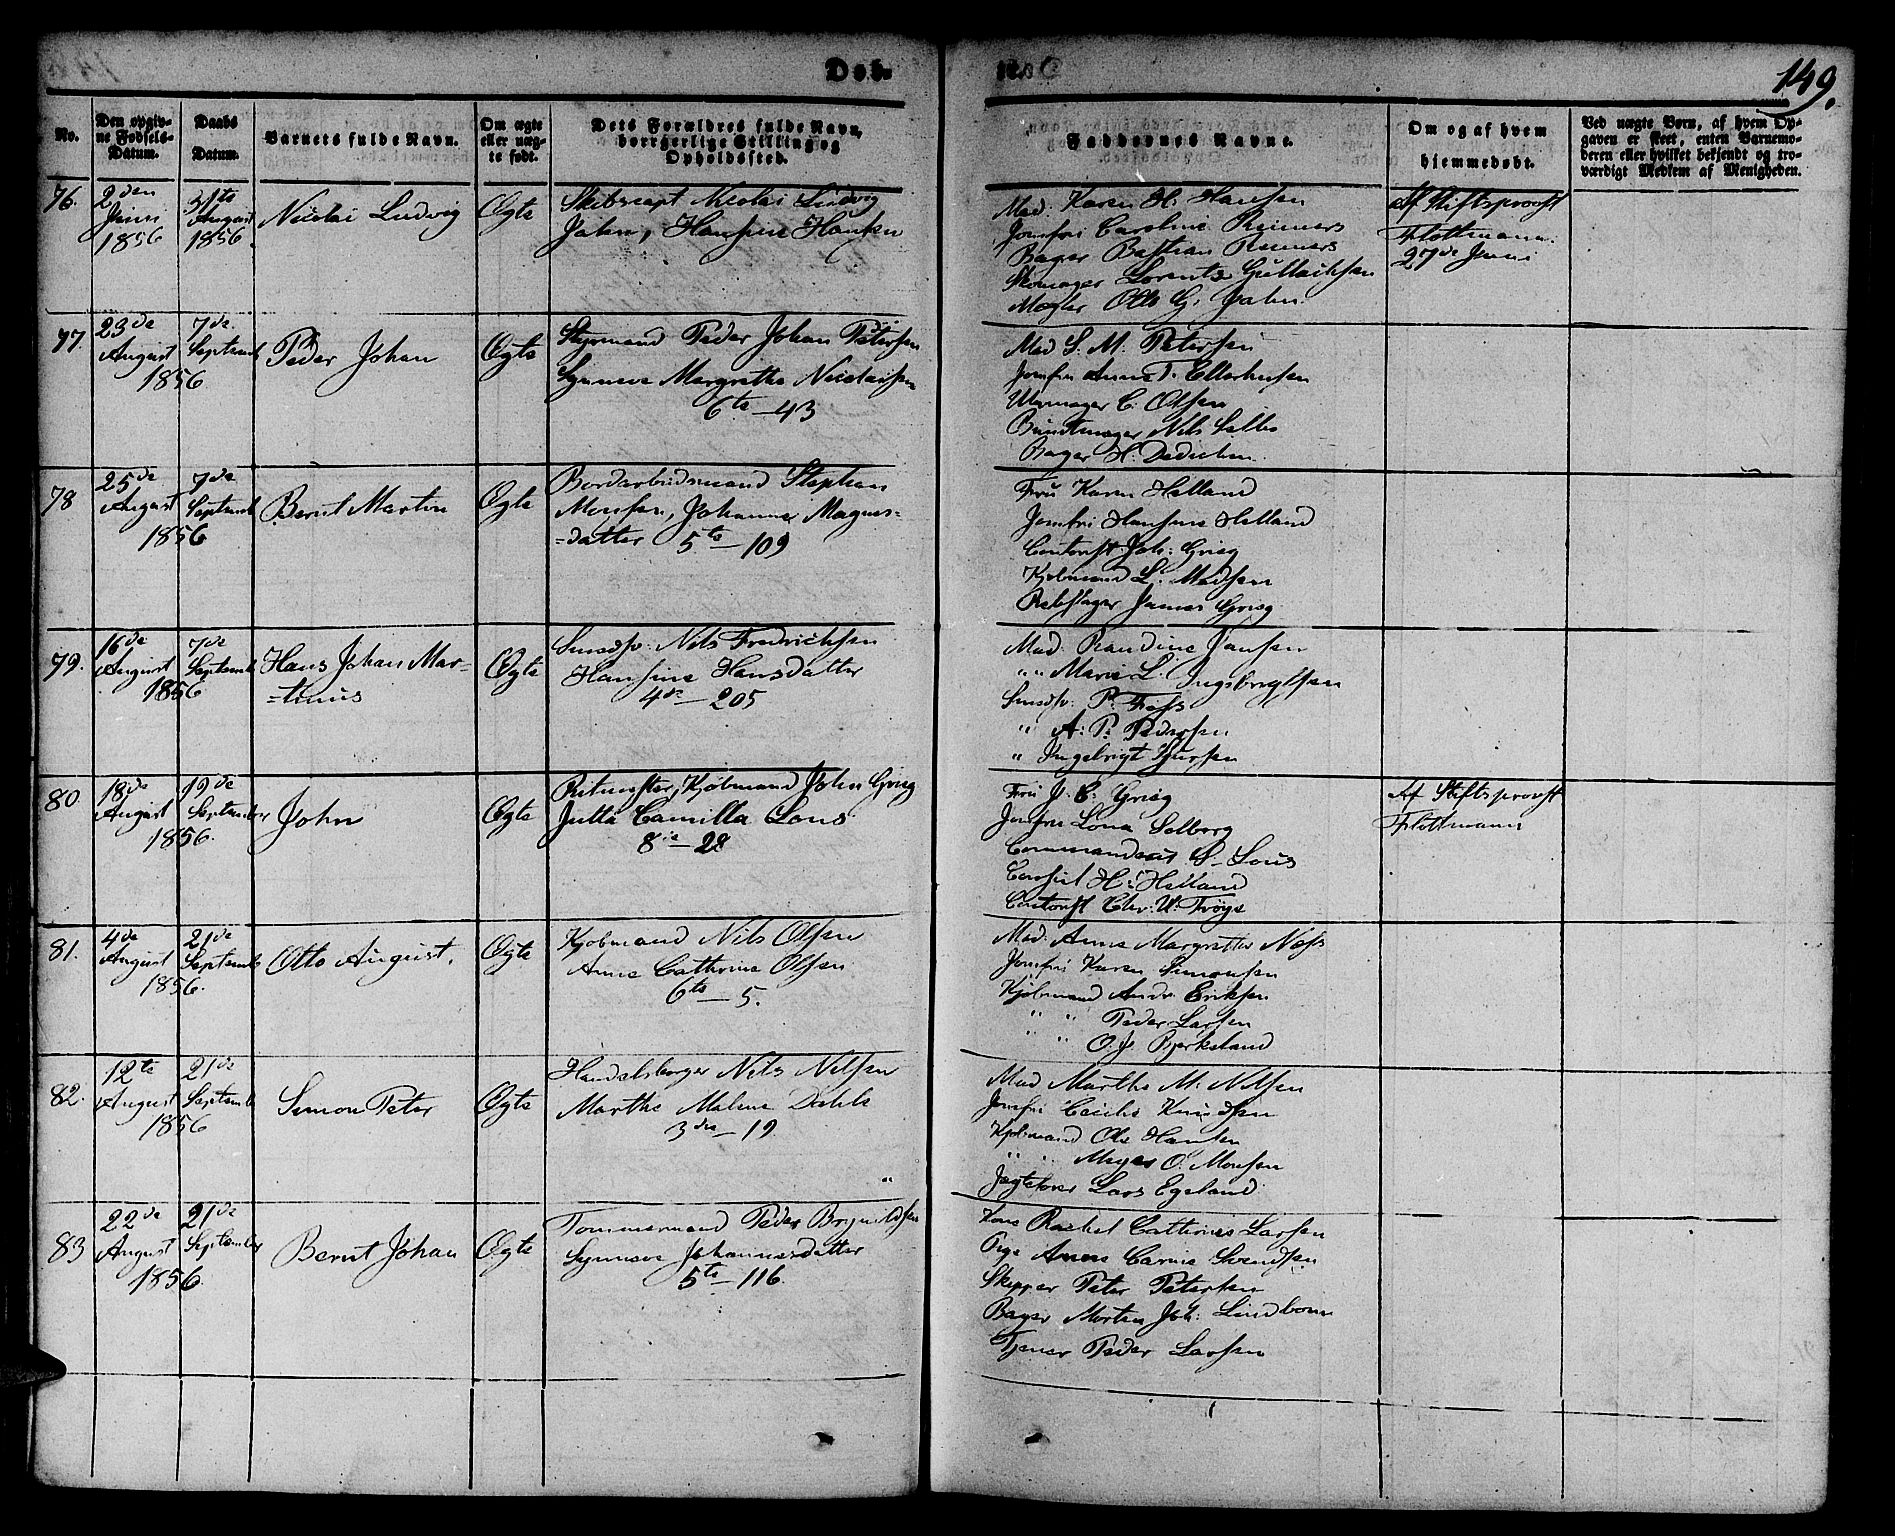 Døb-
149.
No.
Den opgiv-
ne Fødsels-
Datum.
Daabs
Datum.
Barnets fulde Navn.
Om ægte
eller uæg-
te født.
Dets Forældres fulde Navn,
borgerlige Stilling og
Opholdssted.
Faddernes Navne.
Om og af hvem
hjemmedøbt.
Ved uægte Børn, af hvem Op-
gaven er skeet, enten Barnemo-
deren eller hvilket bekjendt og tro-
værdigt Medlem af Menigheden.
76.
2den
Juni
1856
31te
August
1856.
Nicolai Ludvig
Ægte
Skibscapt Nicolai Ludvig
Jahn, Hansine Hansen
Mad. Karen H. Hansen
Jomfru Caroline Reimers
Bager Bastian Reimers
Skomager Lorentz Gullachsen
Mægler Otto G. Jahn
Af Stiftsprovst
Flottmann.
27de Juni
77.
23de
August
1856
7de
Septemb
Peder Johan
Ægte
Styrmand Peder Johan Petersen
Synneve Margrethe Nicolaisen
6te - 43
Mad S. M. Petersen
Jomfru Anne T. Ellerhusen
Uhrmager C. Olsen
Bundtmager Nils
Bager H. Dedichen.
78
25de
August
1856
7de
Septemb
Bernt Martin
Ægte
Bordarbeidsmand Stephan
Monsen, Johanne Magnus-
=datter 5te - 109
Fru Karen Helland
Jomfru Hansine Helland
Contorist Joh: Grieg
Kjøbmand L. Madsen
Rebslager James Grieg
79.
16de
August
1856
7de
Septemb
Hans Johan Mar-
=tinus
Ægte
Nils Fredrichsen
Hansine Hansdatter
4de - 205
Mad. Randine Jansen
" " Marie L. Ingebrigtsen
P. Foss
" A. P. Pedersen
" Ingebrigt
80
18de
August
1856.
19de
September
John
Ægte
Ritmester, Kjøbmand John Grieg
Jutta Camilla Lous
8de - 28
Fru J. C. Grieg
Jomfru Lona Solberg
Commandeur S. Lous
Consul H. Helland
Contorist Chr. W.
Af Stiftsprovst
Flottmann
81.
4de
August
1856.
21de
Septemb
Otto August.
Ægte
Kjøbmand Nils Olsen
Anne Cathrine Olsen
6te - 5.
Mad. Anne Margrethe Næss
Jomfru Karen Simonsen
Kjøbmand Andr. Eriksen
" " Peder Larsen
" " O. J. Bjerkeland
82.
12te
August
1856
21de
Septemb
Simon Peter
Ægte
Handelsborger Nils Nilsen
Marthe Malene Dahle
3die - 19
"
Mad Marthe M. Nilsen
Jomfru Cecilie Knudsen
Kjøbmand Ole Hansen
" " O. Monsen
Lars Egeland
83
22de
August
1856
21de
September
Bernt Johan
Ægte
Tømmermand Peder Brynildsen
Synneve Johannesdatter
5te - 116.
Kone Rachel Cathrine Larsen
Pige Anne Carine Svendsen
Skipper Peter Petersen
Bager Morten Joh. Lindbom
Tjener Peder Larsen